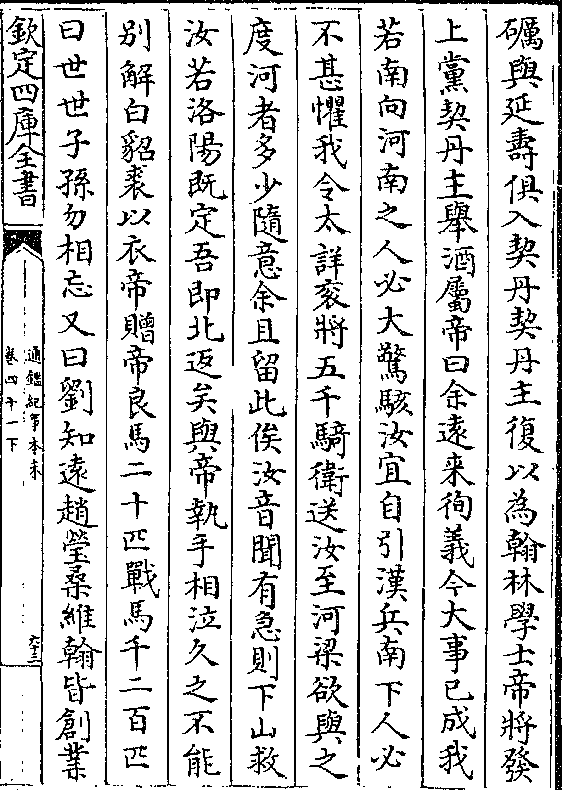 礪與延壽俱入契丹契丹主復以為翰林學士帝將發
上黨契丹主舉酒屬帝曰余遠来徇義今大事已成我
若南向河南之人必大驚駭汝宜自引漢兵南下人必
不甚懼我令太詳衮將五千騎衛送汝至河梁欲與之
度河者多少隨意余且留此俟汝音聞有急則下山救
汝若洛陽既定吾即北返矣與帝執手相泣久之不能
别解白貂裘以衣帝贈帝良馬二十匹戰馬千二百匹
曰世世子孫勿相忘又曰劉知遠趙瑩桑維翰皆創業
欽定四庫全書
通鑑紀事本末
卷四十一下